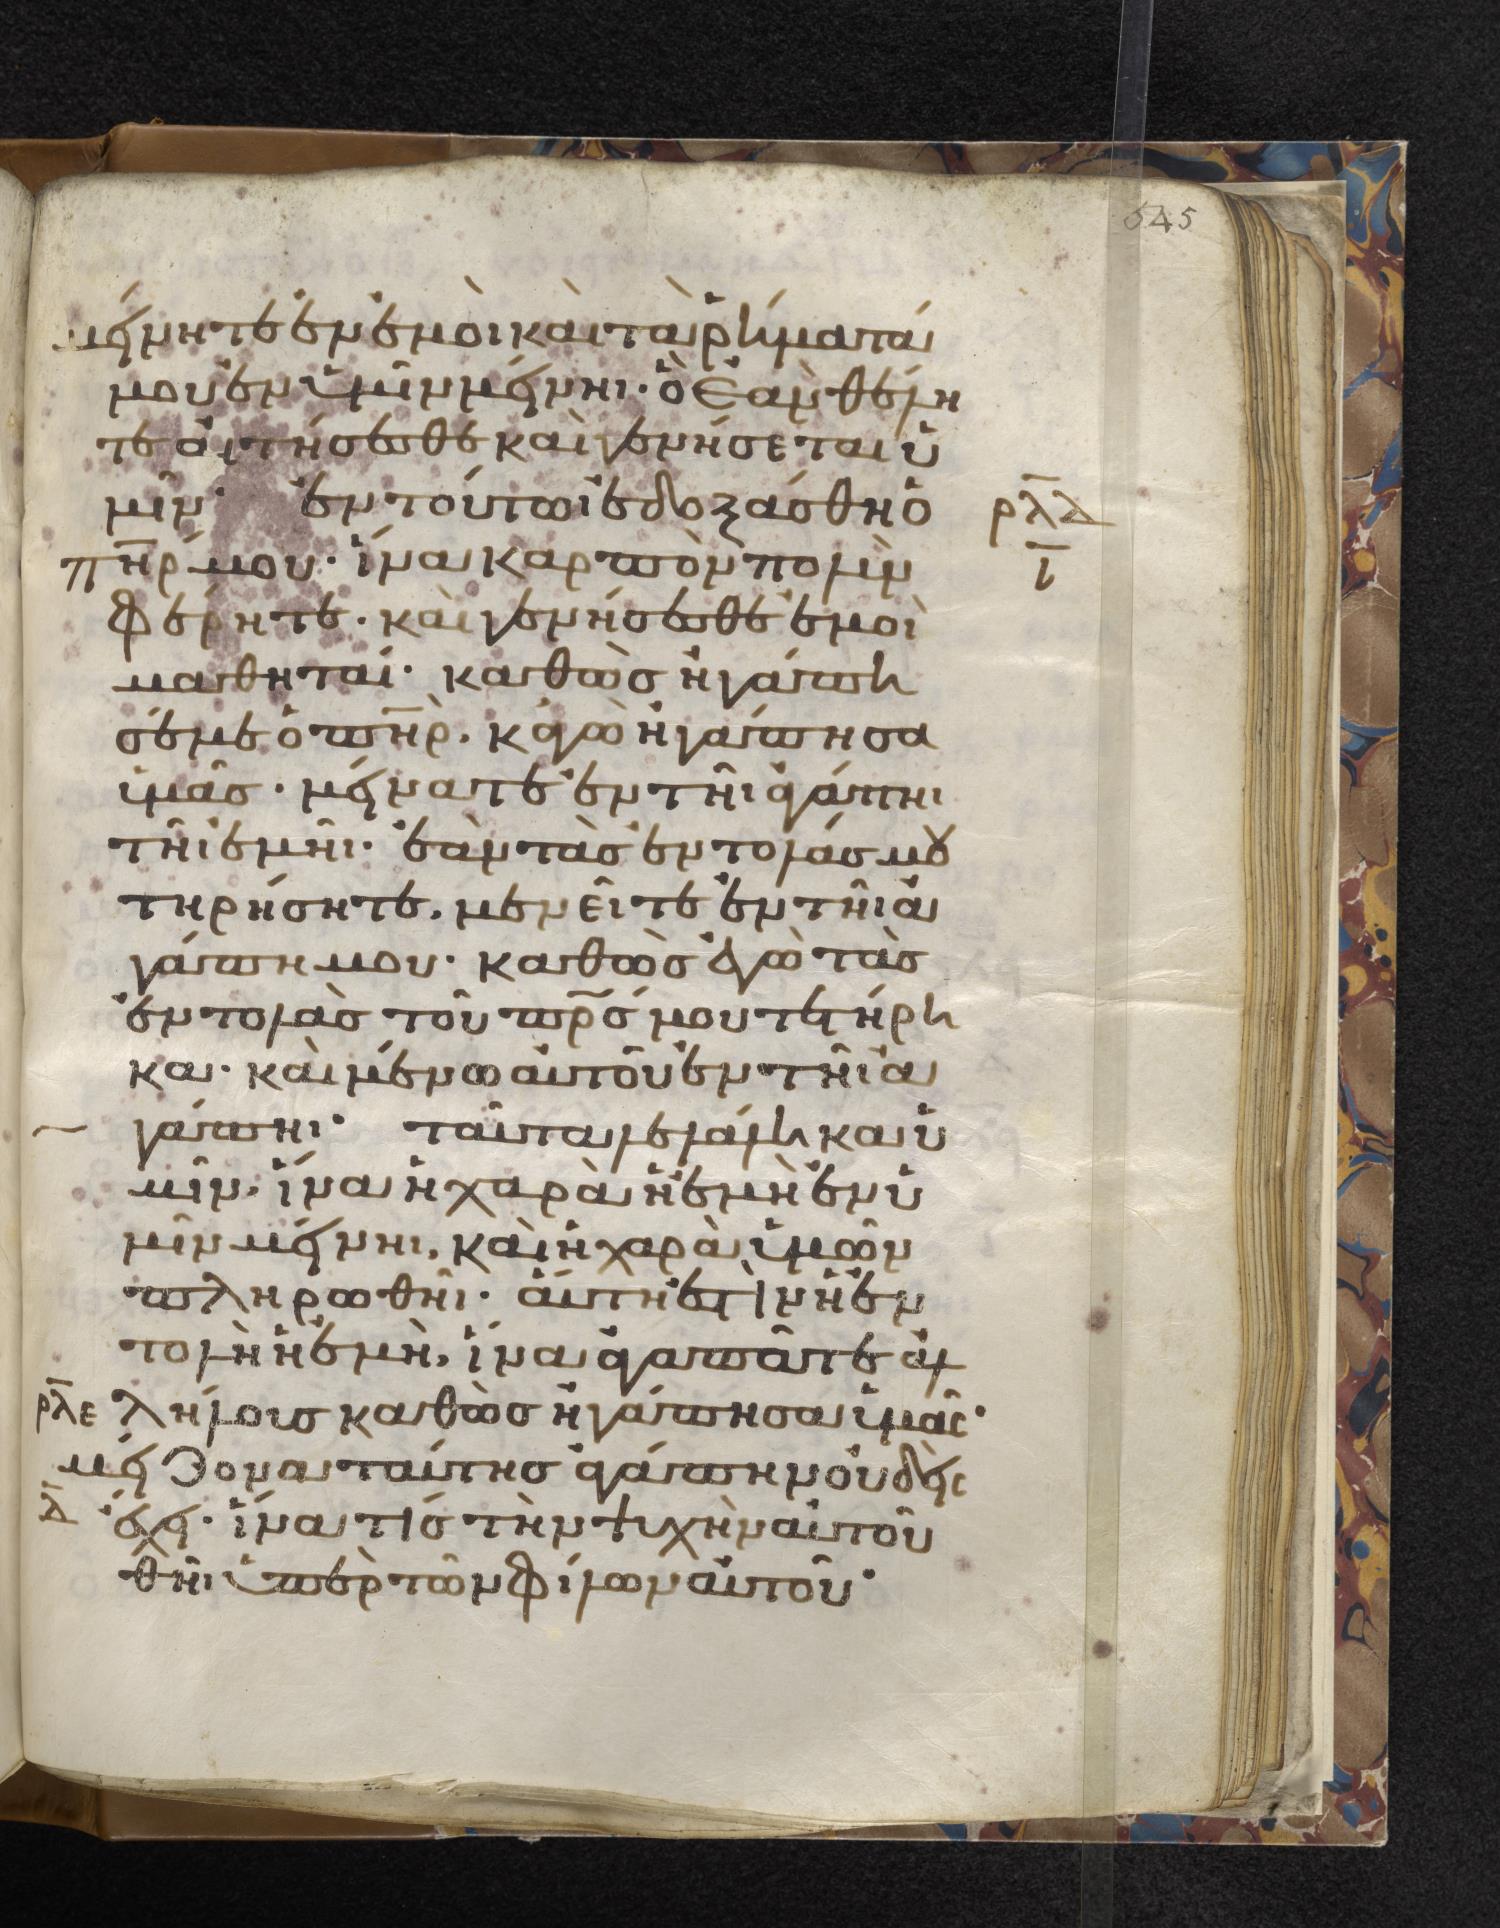 645
μείνητε ἐν ἐμοὶ καὶ τὰ ῥήματά
μου ἐν ὑμῖν μείνηι· ὃ ἐὰν θέλη
τε αἰτήσασθε καὶ γενήσεται ὑ
μῖν· ἐν τούτωι ἐδοξάσθη ὁ ρλδ
πηρ μου· ἵνα καρπὸν πολὺν ι
φέρητε· καὶ γενήσεσθε ἐμοὶ
μαθηταί· καθὼς ἠγάπη
σέ με ὁ πηρ. κἀγὼ ἠγάπησα
ὑμᾶς· μείνατε ἐν τῆι ἀγάπηι
τῆι ἐμῆι· ἐὰν τὰς ἐντολάς μου
τηρήσητε, μενεῖτε ἐν τῆι ἀ
γάπη μου· καθὼς ἐγὼ τὰς
ἐντολὰς τοῦ πρς μου τετήρη
κα· καὶ μένω αὐτοῦ ἐν τῆι ἀ
γάπηι· ταῦτα λελάληκα ὑ
μῖν, ἵνα ἡ χαρὰ ἡ ἐμὴ ἐν ὑ
μῖν μείνηι, καὶ ἡ χαρὰ ὑμῶν
πληρωθῆι· αὕτη ἐστὶν ἡ ἐν
τολὴ ἡ ἐμὴ, ἵνα ἀγαπᾶτε ἀλ
ρλε λήλους καθὼς ἠγάπησα ὑμᾶς·
μείζονα ταύτης ἀγάπην οὐδεὶς
δ ἔχει· ἵνα τὶς τὴν ψυχὴν αὐτοῦ
θῆι ὑπὲρ τῶν φίλων αὐτοῦ·